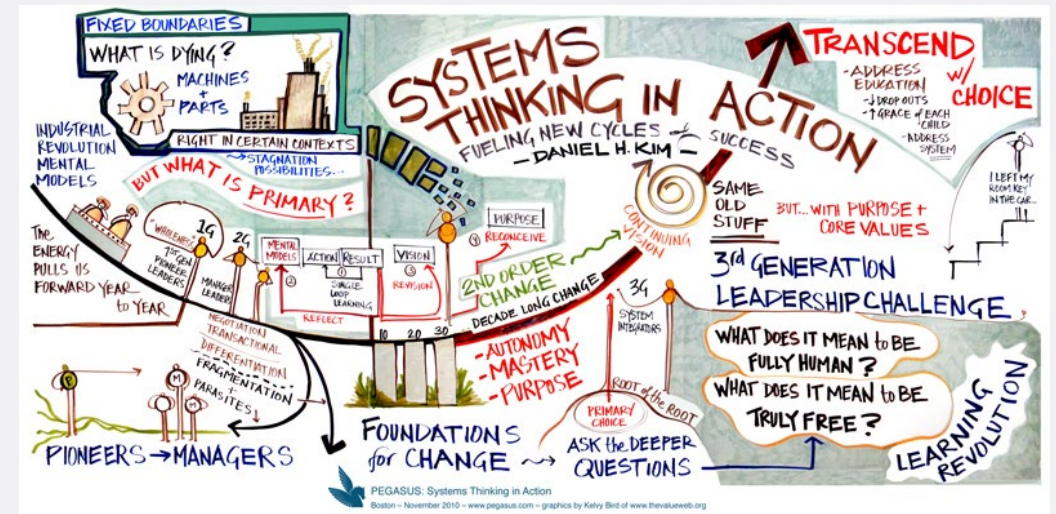 FIXED BOUNDARIES
WHAT IS DYING?
MACHINES
+
PARTS
RIGHT IN CERTAIN CONTEXTS
→ STAGNATION
POSSIBILITIES...
INDUSTRIAL
REVOLUTION
MENTAL
MODELS
BUT WHAT IS PRIMARY?
The
ENERGY
PULLS US
FORWARD YEAR
to YEAR
"WHOLENESS"
1G
1ST GEN
PIONEER
LEADERS
2G
MANAGER
LEADERS
MENTAL
MODELS
ACTION
RESULT
①
SINGLE
LOOP
LEARNING
②
REFLECT
VISION
③
REVISION
④
PURPOSE
RECONCEIVE
2ND ORDER
CHANGE
DECADE LONG CHANGE
10 20 30
NEGOTIATION
TRANSACTIONAL
DIFFERENTIATION
FRAGMENTATION
+
PARASITES
P
M
M
PIONEERS → MANAGERS
SYSTEMS
THINKING IN ACTION
FUELING NEW CYCLES of SUCCESS
- DANIEL H. KIM -
CONTINUING
VISION
SAME
OLD
STUFF
BUT... WITH PURPOSE +
CORE VALUES
TRANSCEND
w/
CHOICE
- ADDRESS
EDUCATION
- ↓ DROP OUTS
- ↑ GRACE of EACH
CHILD
- ADDRESS
SYSTEM
I LEFT MY
ROOM KEY
IN THE CAR...
3rd GENERATION
LEADERSHIP CHALLENGE
3G
SYSTEM
INTEGRATORS
- AUTONOMY
- MASTERY
- PURPOSE
ROOT of the ROOT
PRIMARY
CHOICE
FOUNDATIONS
for CHANGE
ASK the DEEPER
QUESTIONS
WHAT DOES IT MEAN to BE
FULLY HUMAN?
WHAT DOES IT MEAN to BE
TRULY FREE?
LEARNING
REVOLUTION
PEGASUS: Systems Thinking in Action
Boston – November 2010 – www.pegasus.com – graphics by Kelvy Bird of www.thevalueweb.org